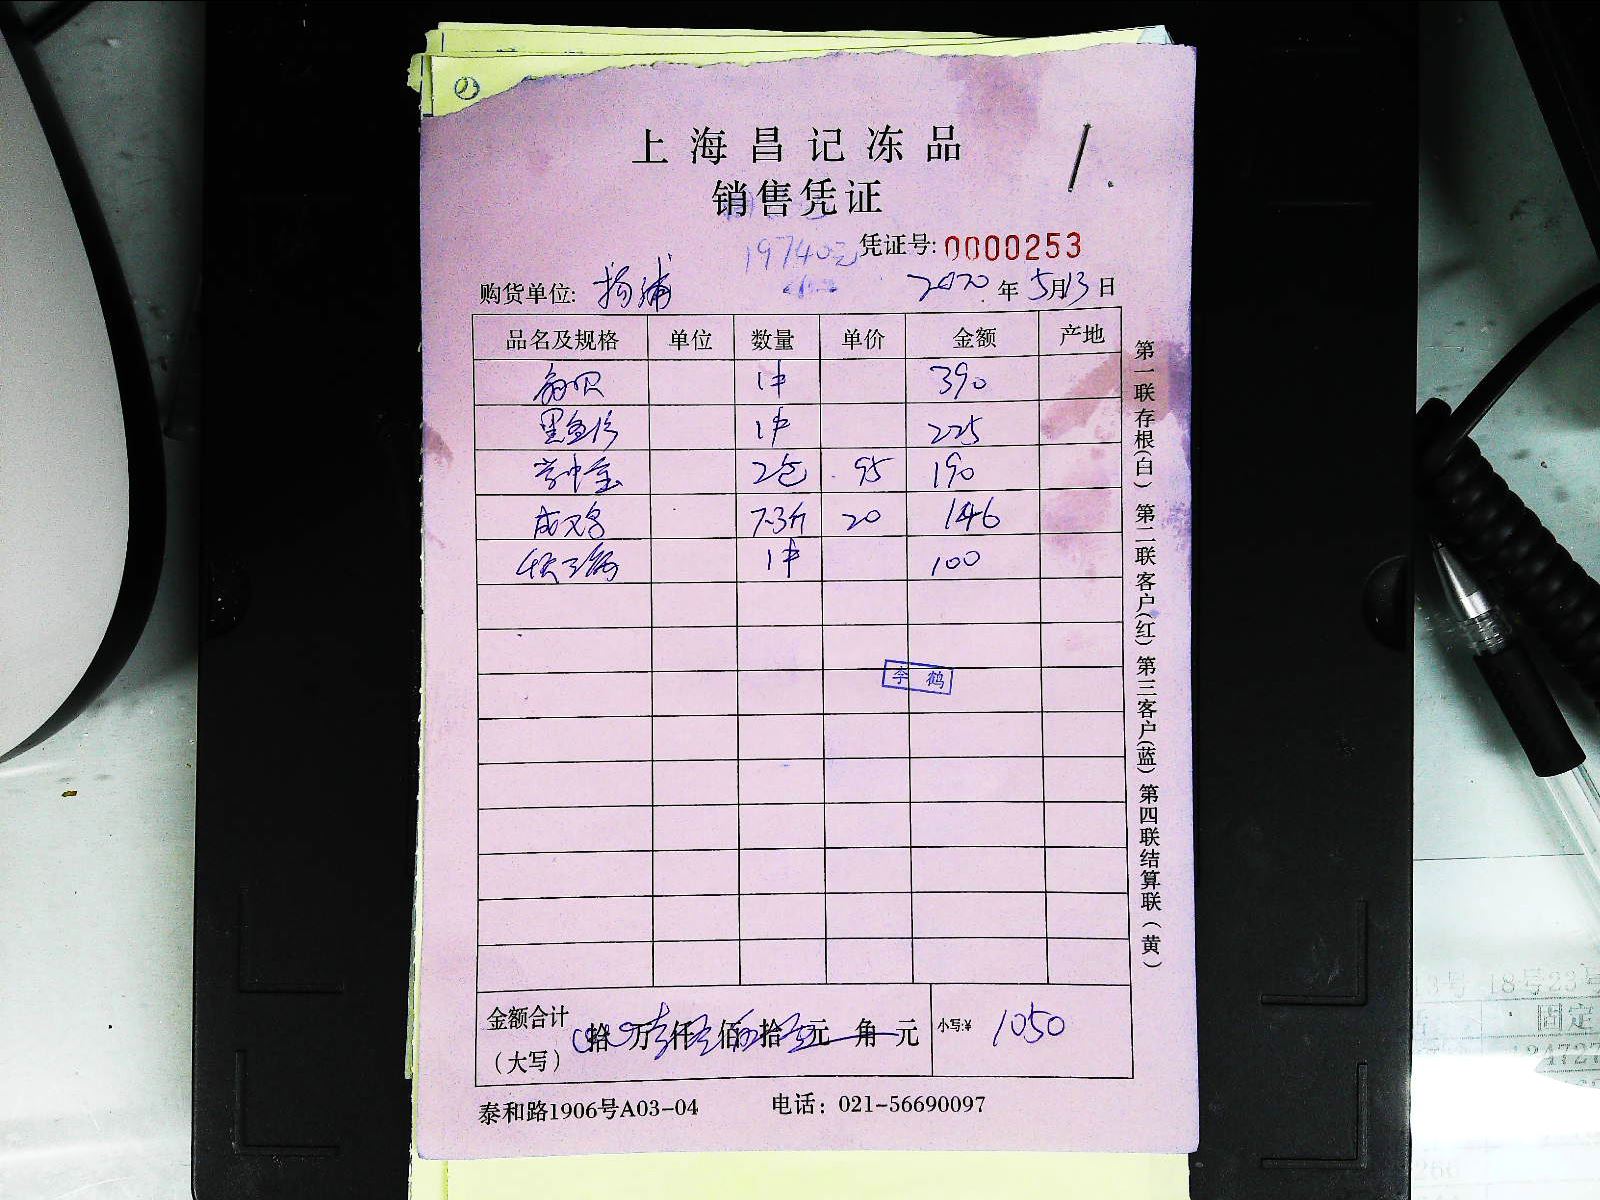 上海昌记冻品
销售凭证
19740元
凭证号: 0000253
购货单位: 杨浦 2020 年 5月13日
品名及规格 单位 数量 单价 金额 产地
1件 390
黑鱼片 1件 225
2包 95 190
成又鸟 7.3斤 20 146
1件 100
李鹤
金额合计（大写） 拾 万 仟 佰 拾 元 角 元 小写:¥ 1050
泰和路1906号A03-04 电话：021-56690097
第一联存根(白) 第二联客户(红) 第三客户(蓝) 第四联结算联(黄)
13号 18号23号
固定